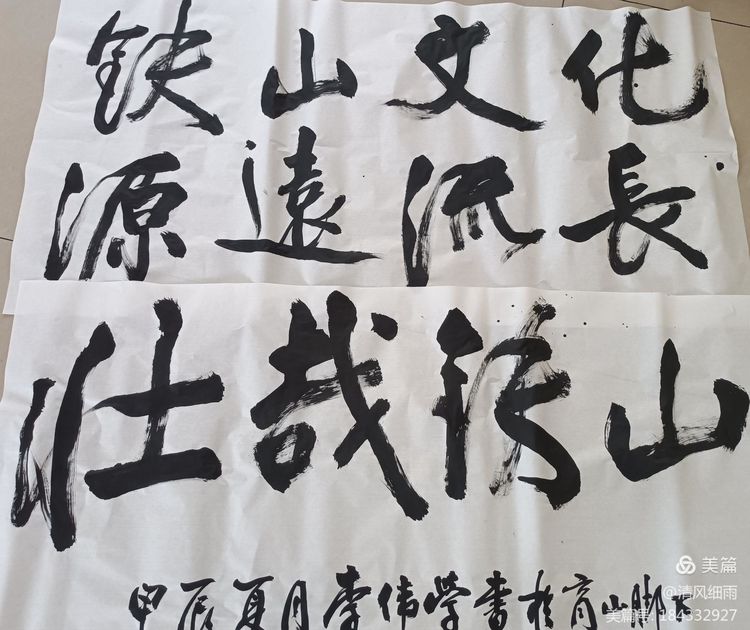 鉄山文化
源遠流長
壮哉铁山
甲辰夏月李伟学書於山脚下
美篇
@清风细雨
美篇号:184332927